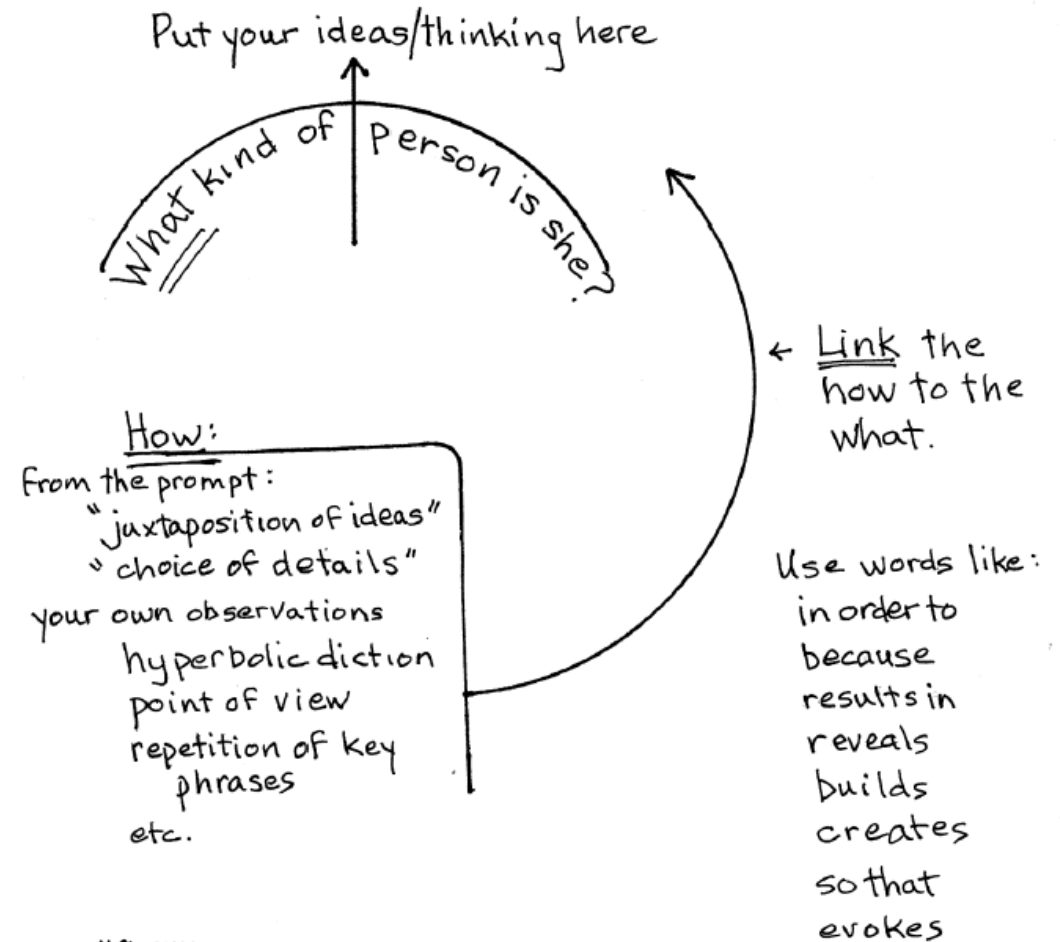 Put your ideas/thinking here
What kind of person is she?
← Link the
how to the
what.
How:
From the prompt:
"juxtaposition of ideas"
"choice of details"
your own observations
hyperbolic diction
point of view
repetition of key
phrases
etc.
Use words like:
in order to
because
results in
reveals
builds
creates
so that
evokes